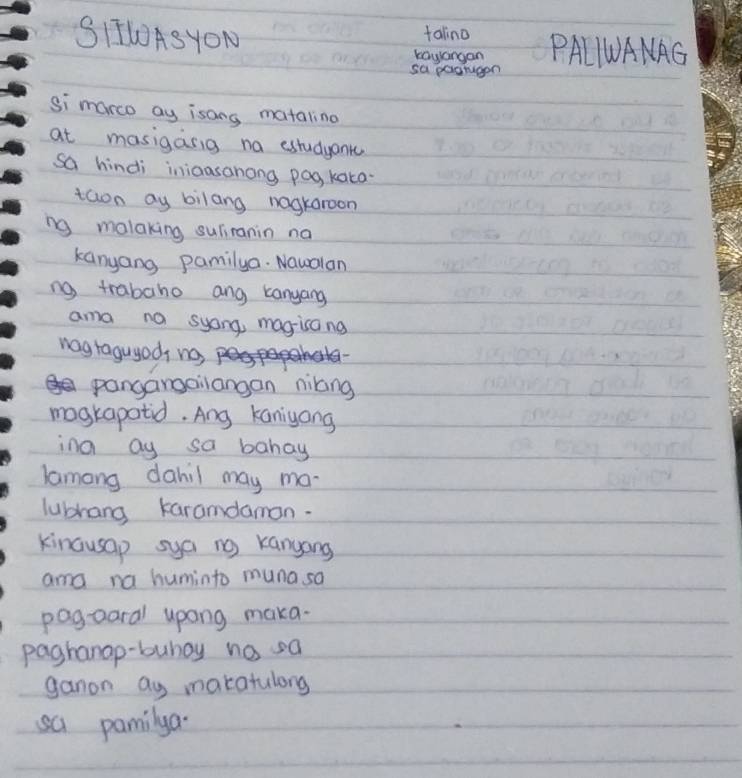 SITWASYON
talino
kaylangan
sa pagtugon
PALIWANAG
Si marco ay isang matalino
at masigasig na estudyante
sa hindi iniaasahang pagkaka-
taon ay bilang nagkaroon
ng malaking suliranin na
kanyang pamilya. Nawalan
ng trabaho ang kanyang
ama na syang mag-isang
nagtaguyod ng
pangangailangan nilang
magkapatid. Ang kaniyang
ina ay sa bahay
lamang dahil may ma-
lubhang karamdaman.
kinausap sya ng kanyang
ama na huminto muna sa
pag-aaral upang maka-
paghanap-buhay na sa
ganon ay makatulong
sa pamilya.